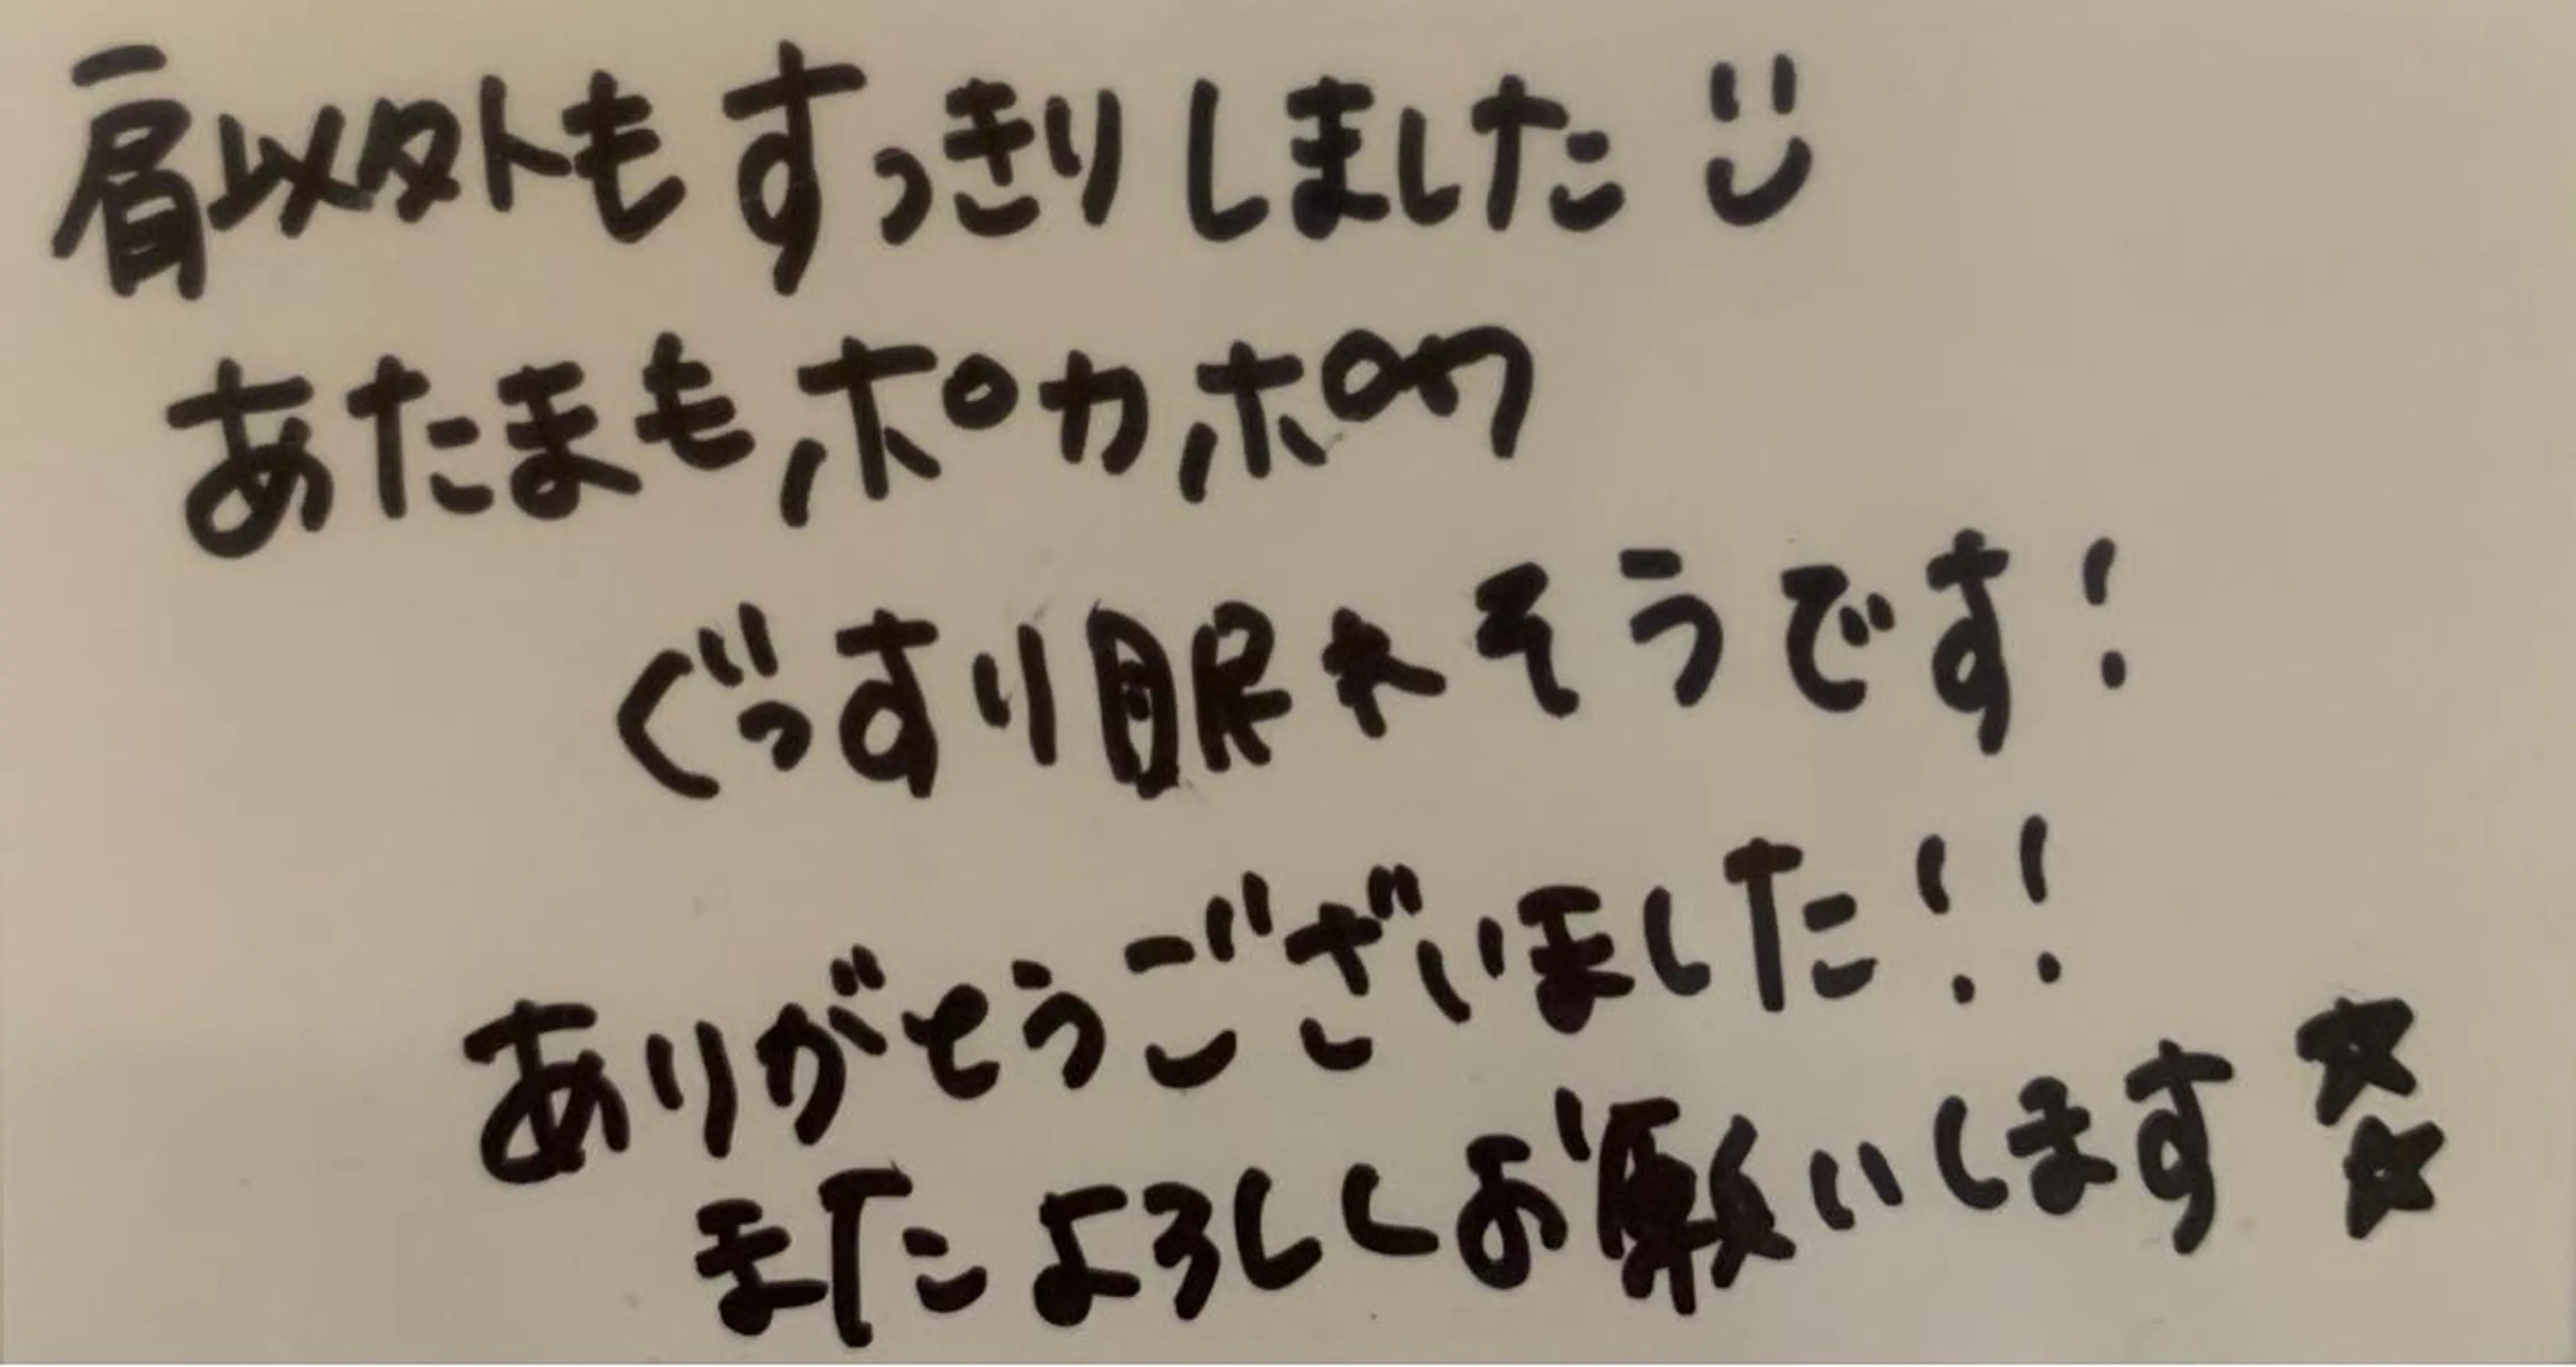 肩以外もすっきりしました
あたまもポカポカ
ぐっすり眠れそうです!
ありがとうございました!!
またよろしくお願いします☆☆